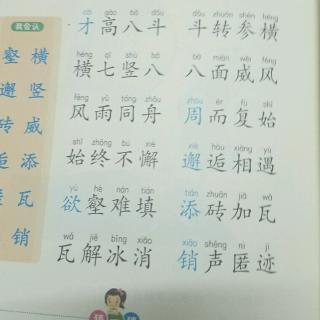 我会认
壑 横
邂 竖
砖 威
逅 添
瓦
销
cái gāo bā dǒu dǒu zhuǎn shēn héng
才高八斗 斗转参横
héng qī shù bā bā miàn wēi fēng
横七竖八 八面威风
fēng yǔ tóng zhōu zhōu ér fù shǐ
风雨同舟 周而复始
shǐ zhōng bú xiè xiè hòu xiāng yù
始终不懈 邂逅相遇
yù hè nán tián tiān zhuān jiā wǎ
欲壑难填 添砖加瓦
wǎ jiě bīng xiāo xiāo shēng nì jì
瓦解冰消 销声匿迹